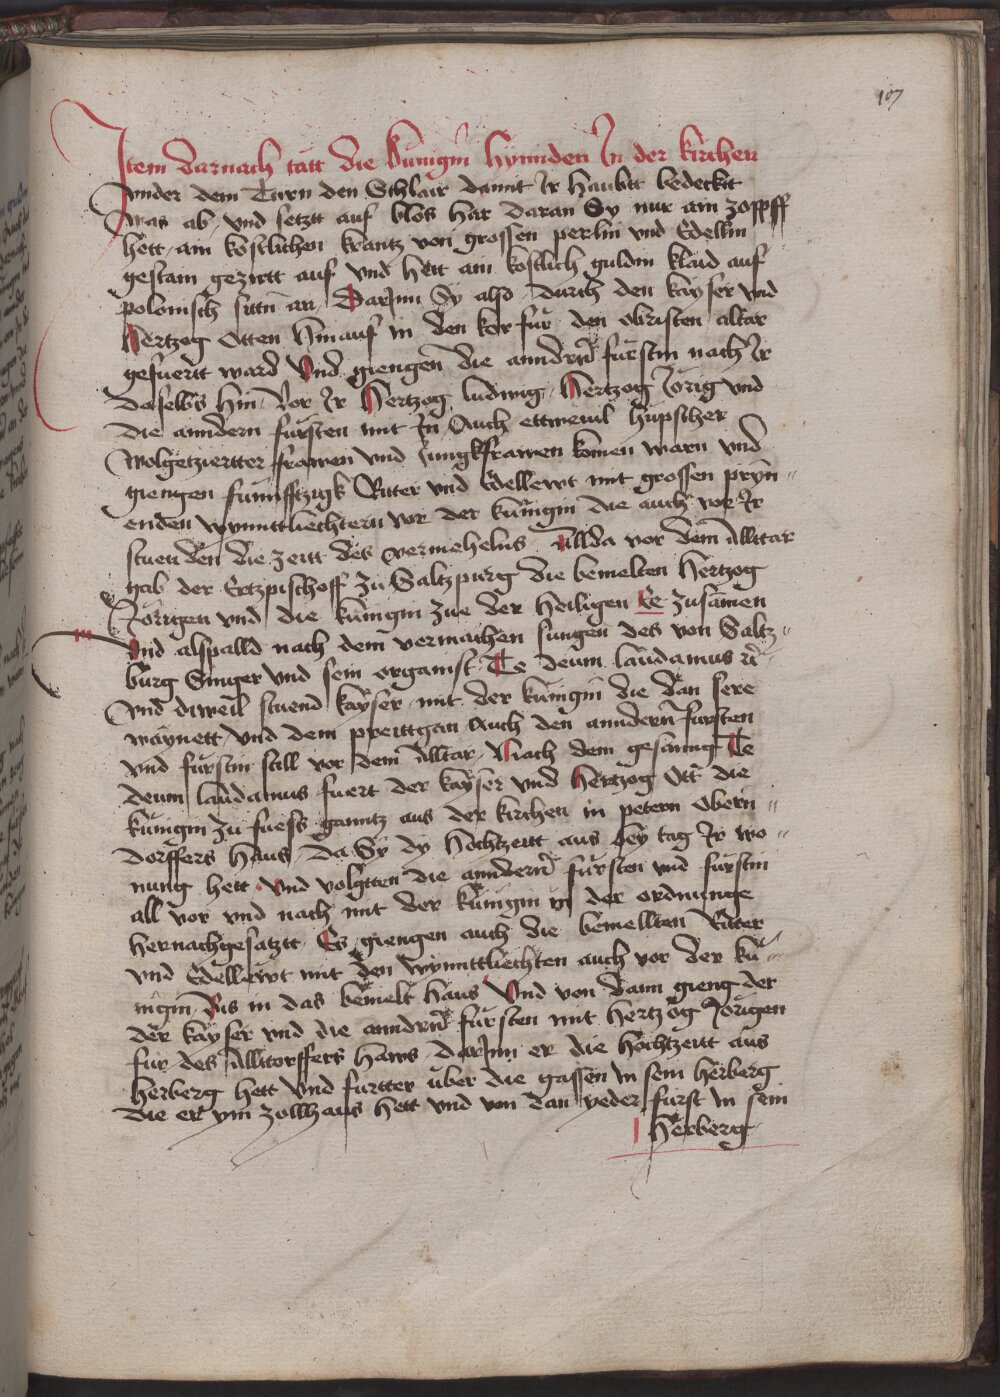 107
Item darnach tatt die kunigin hynnden In der kirchen
vnder dem Turn den Schlair damit Ir haubtt bedeckt
was ab, vnd setzt auf blos har daran Sy nur ain zopff
hett, ain kostlichen krantz von grossen perlin vnd Edellm
gestain geziertt auf vnd hett ain kostlich guldin klaid auf
polonisch sittn an, Darinn Sy also durch den kayser vnd
hertzog Otten hinauf in den kor fur den obristen altar
gefuertt ward Vnd giengen die anndern furstin nach Ir
daselbs hin, Vor Ir hertzog ludwig, hertzog Jorig vnd
die anndern fursten mit In Auch ettweuil hupscher
wolgetziertter frawen vnd Jungkfrawen komen warn vnd
giengen funfftzigk Ritter vnd Edellewt mit grossen prynn-
enden wynnttliechtern vor der kunigin die auch vor Ir
stuenden die zeitt des vermehelns, Allda vor dem Alltar
gab der Ertzpischoff zu Saltzpurg die bemelten hertzog
Jorigen vnd die kunigin zue der heiligen Ee zusamen
Vnd alspalld nach dem vermachen sungen des von Saltz-
burg Singer vnd sein organist Te deum laudamus
vnd diweil stuend kayser mit der kunigin die dan sere
waynett vnd dem preittgan Auch den anndern fursten
vnd furstin still vor dem Alltar, Nach dem gesanng Te
deum laudamus fuert der kayser vnd hertzog Ott die
kunigin zu fuess ganntz aus der kirchen in petern obern-
dorffers haus, da Sy dy hochtzeitt aus bey tag Ir wo-
nung hett Vnd volgtten die anndern fursten vnd furstin
all vor vnd nach mit der kunigin in der ordnunge
hernachgesatztt, Es giengen auch die bemellten Ritter
vnd Edellewt mit den wynnttliechten auch vor der ku-
nigin, bis in das bemelt haus Vnd von dann gieng der
der kayser vnd die anndern fursten mit hertzog Jorigen
fur des Alltorffers haws, darinn er die hochtzeitt aus
herberg hett vnd furtter uber die gassen in sein herberg
die er ym zollhaus hett vnd von dan yeder furst in sein
herberg